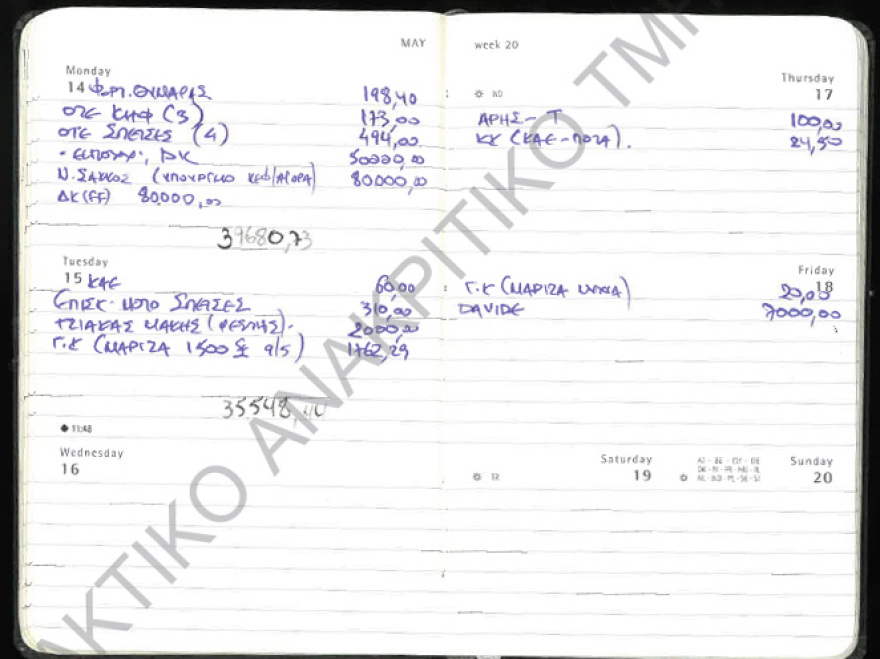 MAY
Monday
14 ΦΟΡΤ. ΘΥΜΑΡΑΣ 198,40
ΟΤΕ ΚΗΦ (3) 173,00
ΟΤΕ ΣΠΕΤΣΕΣ (4) 494,00
50000,00
Ν. ΣΑΚΚΟΣ (ΥΠΟΥΡΓΕΙΟ ΚΕΦ/ΑΓΟΡΑ) 80000,00
ΔΚ (FF) 80.000,00
39680,73
Tuesday
15 ΚΑΕ 60,00
ΕΠΙΣΚ. ΜΟΤΟ ΣΠΕΤΣΕΣ 310,00
ΤΖΙΑΚΑΣ ΜΑΚΗΣ 2000,00
Γ.Κ (ΜΑΡΙΖΑ 1500 £ 9/5) 1762,29
35.548,40
11:48
Wednesday
16
week 20
Thursday
ND 17
ΑΡΗΣ - Τ 100,00
ΚΚ (ΚΑΕ - ΠΟΤΑ). 24,50
Friday
18
Γ.Κ (ΜΑΡΙΖΑ) 20,00
DAVIDE 7000,00
Saturday
TR 19
Sunday
20
ΑΚΤΙΚΟ ΑΝΑΚΡΙΤΙΚΟ ΤΜΗ